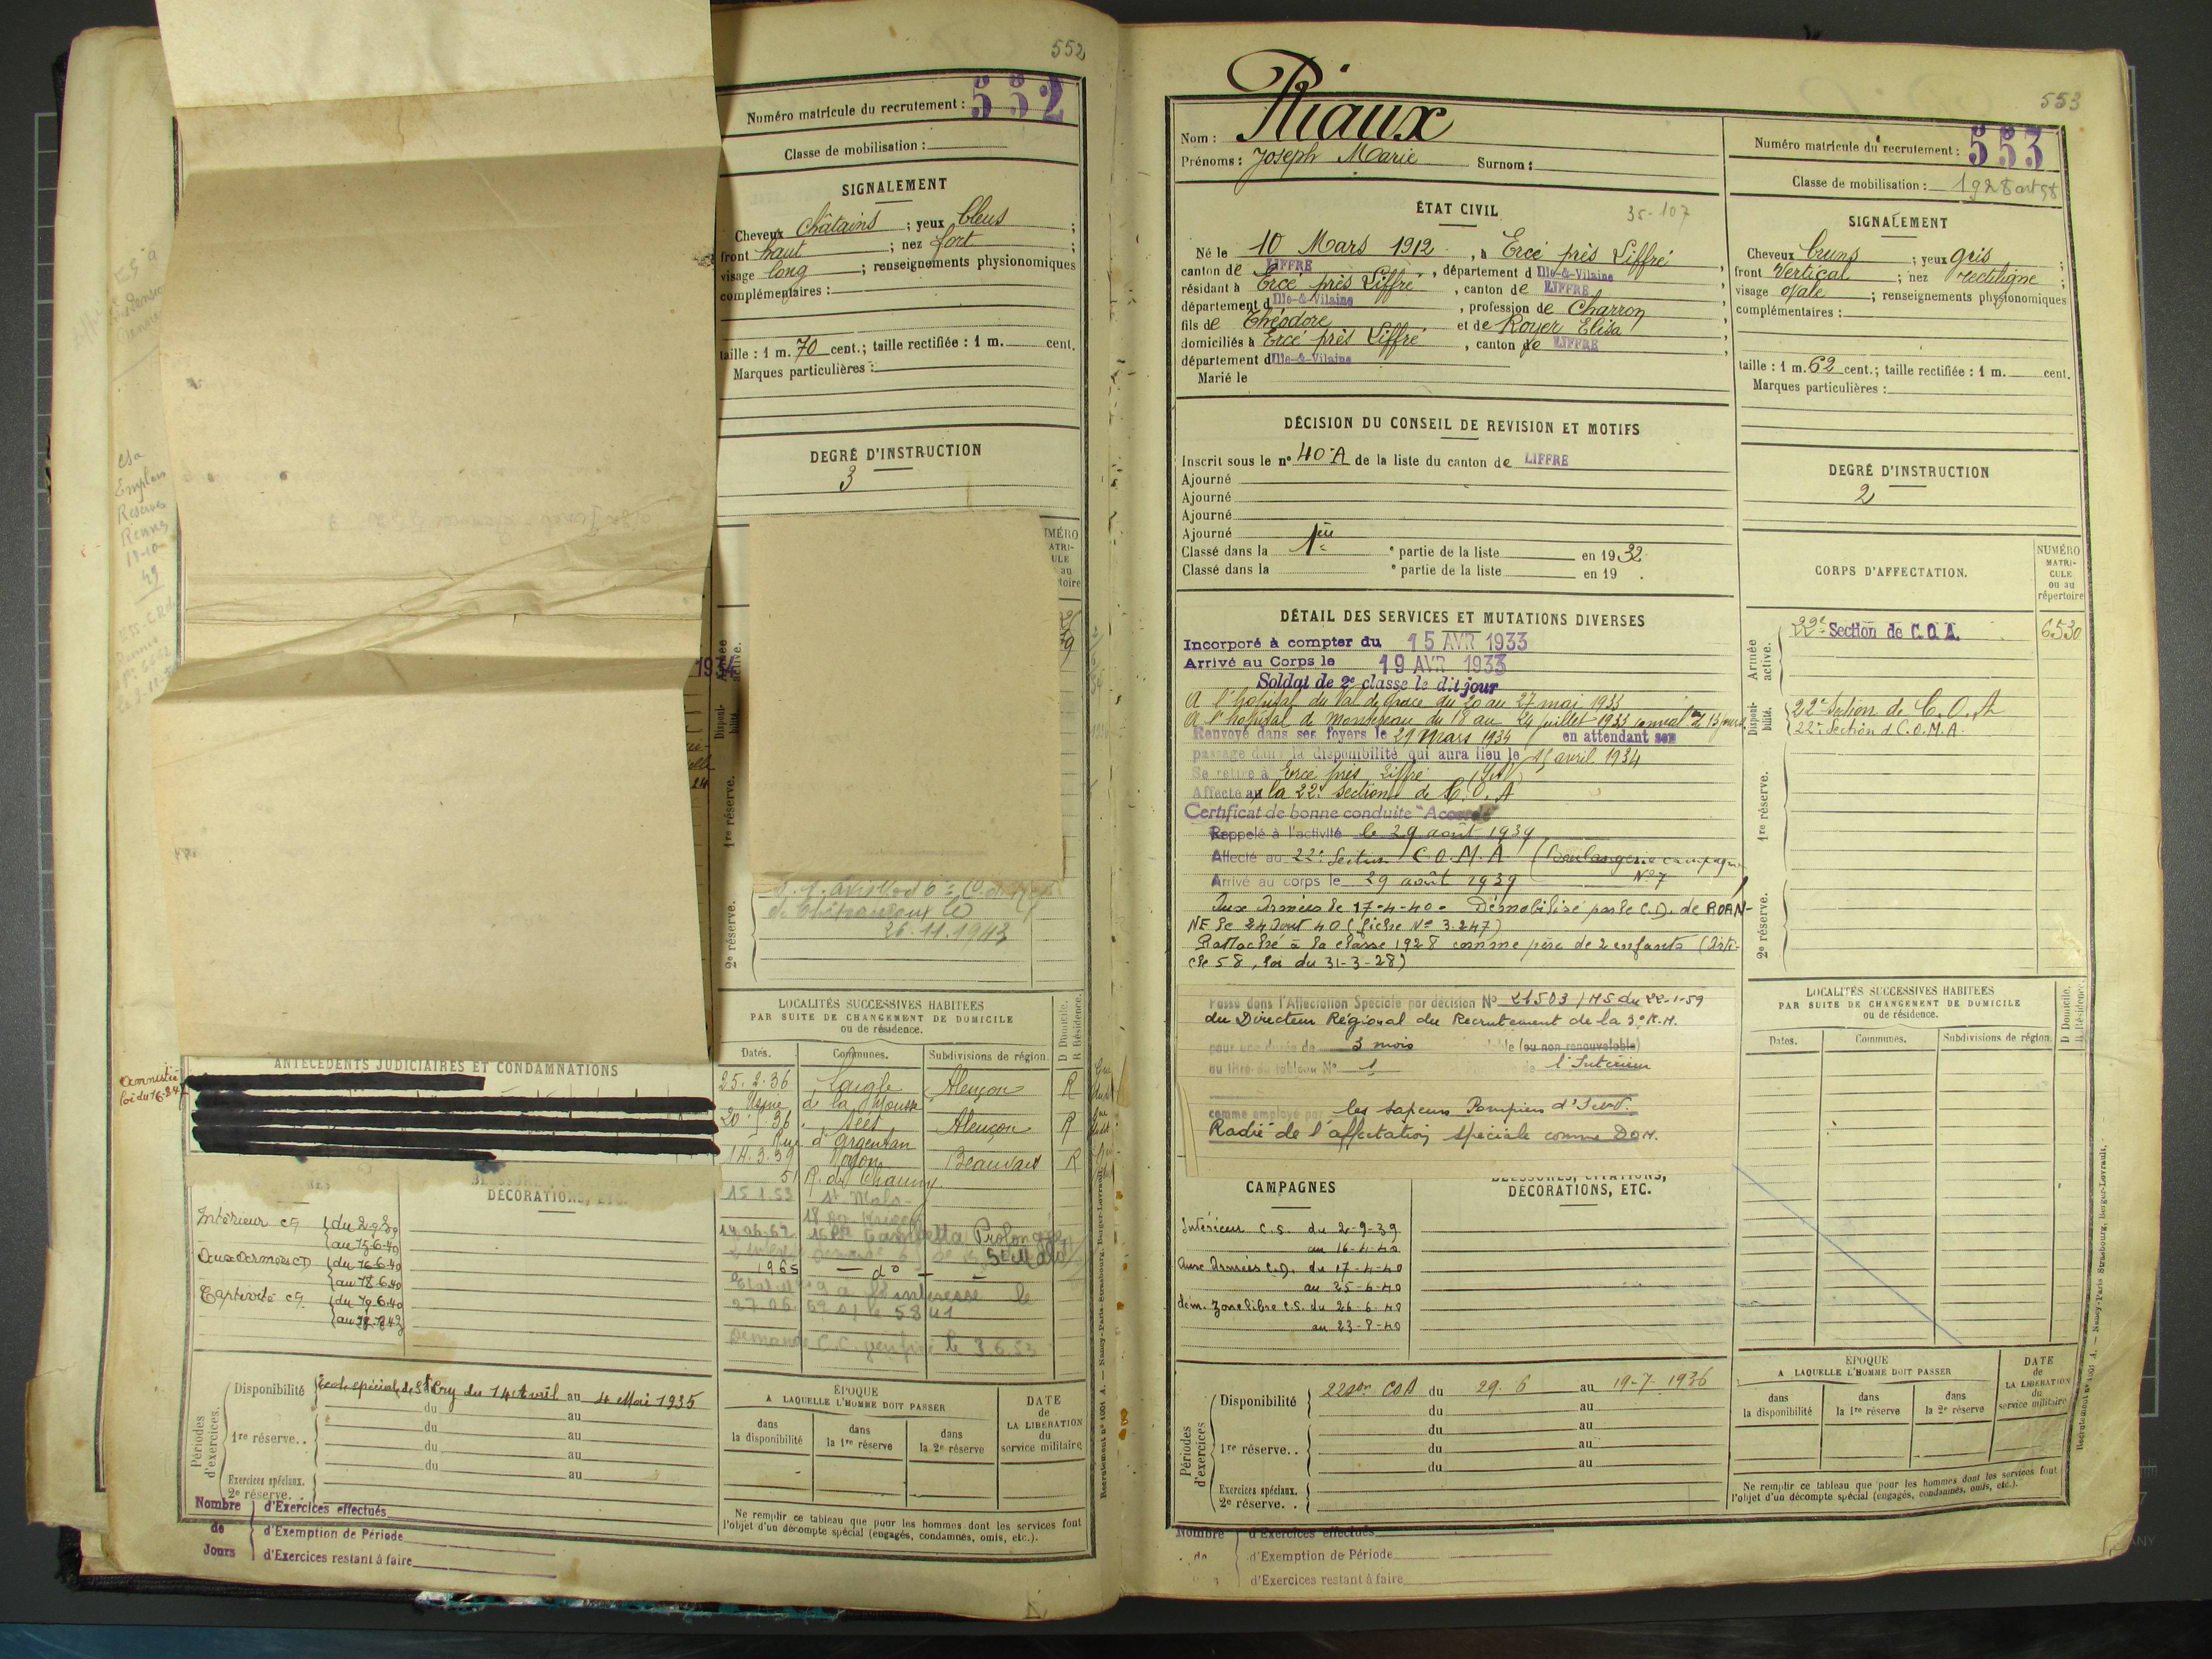 552
Numéro matricule du recrutement : 552
Classe de mobilisation :
SIGNALEMENT
Cheveux châtains ; yeux bleus ;
front haut ; nez fort ;
visage long ; renseignements physionomiques
complémentaires :
taille : 1 m. 70 cent.; taille rectifiée : 1 m. cent.
Marques particulières :
DEGRÉ D'INSTRUCTION
3
Armée active.
1934
1re réserve.
2e réserve.
de Châteauroux le
26.11.1942
LOCALITÉS SUCCESSIVES HABITÉES
PAR SUITE DE CHANGEMENT DE DOMICILE
ou de résidence.
D Domicile.
R Résidence.
Dates. Communes. Subdivisions de région.
25.2.36 Laigle Alençon R
de la
36 Sées Alençon R
Rue d'Argentan
14.3.39 Noyon Beauvais R
51 R. de Chauny
15.1.53 St Malo
Gambetta Prolongée
St Malo
1965 — do —
l'intéressé le
Demande C.C. le 3.6.53
ÉPOQUE
A LAQUELLE L'HOMME DOIT PASSER
DATE
de
LA LIBÉRATION
du
service militaire
dans
la disponibilité
dans
la 1re réserve
dans
la 2e réserve
Ne remplir ce tableau que pour les hommes dont les services font
l'objet d'un décompte spécial (engagés, condamnés, omis, etc.).
Emplois
Réserves
Rennes
49
Amnistié
loi du 16-8-47
ANTÉCÉDENTS JUDICIAIRES ET CONDAMNATIONS
DÉCORATIONS, ETC.
Intérieur CS du 2-9-39
au 15-6-40
Aux Armées CD du 16-6-40
au 18-6-40
Captivité CS du 19-6-40
Périodes d'exercices.
Disponibilité École spéciale de St Cyr du 14 Avril au 4 Mai 1935
du au
1re réserve.. du au
du au
du au
Exercices spéciaux.
2e réserve..
Nombre d'Exercices effectués
de d'Exemption de Période
Jours d'Exercices restant à faire
Recrutement n° 1001 A. — Nancy-Paris-Strasbourg, Berger-Levrault.
553
Nom : Riaux
Prénoms : Joseph Marie Surnom :
Numéro matricule du recrutement : 553
Classe de mobilisation : 1928 art 58
ÉTAT CIVIL
35-107
Né le 10 Mars 1912, à Ercé près Liffré
canton de LIFFRE, département d Ille-&-Vilaine,
résidant à Ercé près Liffré, canton de LIFFRE
département d Ille-&-Vilaine, profession de Charron
fils de Théodore et de Royer Elisa
domiciliés à Ercé près Liffré, canton de LIFFRE
département d Ille-&-Vilaine
Marié le
SIGNALEMENT
Cheveux bruns ; yeux gris ;
front Vertical ; nez rectiligne ;
visage ovale ; renseignements physionomiques
complémentaires :
taille : 1 m. 62 cent.; taille rectifiée : 1 m. cent.
Marques particulières :
DÉCISION DU CONSEIL DE REVISION ET MOTIFS
Inscrit sous le n° 40 A de la liste du canton de LIFFRE
Ajourné
Ajourné
Ajourné
Ajourné
Classé dans la 1ère e partie de la liste en 1932
Classé dans la e partie de la liste en 19 .
DEGRÉ D'INSTRUCTION
2
DÉTAIL DES SERVICES ET MUTATIONS DIVERSES
Incorporé à compter du 15 AVR 1933
Arrivé au Corps le 19 AVR 1933
Soldat de 2e classe le dit jour
A l'hôpital du Val de Grâce du 20 au 27 mai 1933
A l'hôpital de Montereau du 18 au 24 juillet 1933 convalce de 15 jours
Renvoyé dans ses foyers le 29 Mars 1934 en attendant son
passage dans la disponibilité qui aura lieu le 15 avril 1934
Se retire à Ercé près Liffré (I&V)
Affecté à la 22e Section de C.O.A
Certificat de bonne conduite "Accordé"
Rappelé à l'activité le 29 août 1939
Affecté au 22e Section C.O.M.A (Boulangerie campagne
Arrivé au corps le 29 août 1939 N°7
Aux Armées le 17-4-40. Démobilisé par le C.D. de ROAN-
NE le 24 Aout 40 (fiche N° 3.247)
Rattaché à la classe 1928 comme père de 2 enfants (Arti-
cle 58, loi du 31-3-28)
Passé dans l'Affectation Spéciale par décision N° 21503 / MS du 22-1-59
du Directeur Régional du Recrutement de la 3e R.M.
pour une durée de 3 mois (ou non renouvelable)
au titre du tableau N° 1 de l'Intérieur
comme employé par les Sapeurs Pompiers d'I. et V.
Radié de l'affectation spéciale comme DOM.
CORPS D'AFFECTATION.
NUMÉRO
MATRI-
CULE
ou au
répertoire
Armée active.
22e Section de C.O.A. 6530
Disponi-
bilité.
22e Section de C.O.A
22e Section de C.O.M.A.
1re réserve.
2e réserve.
LOCALITÉS SUCCESSIVES HABITÉES
PAR SUITE DE CHANGEMENT DE DOMICILE
ou de résidence.
D Domicile.
R Résidence.
Dates. Communes. Subdivisions de région.
CAMPAGNES
BLESSURES, CITATIONS,
DÉCORATIONS, ETC.
Intérieur C.S. du 2-9-39
au 16-4-40
Aux Armées C.D. du 17-4-40
au 25-6-40
dém. zone libre C.S. du 26-6-40
au 23-8-40
Périodes d'exercices
Disponibilité 22son COA du 29.6 au 19-7-1936
du au
du au
1re réserve.. du au
du au
Exercices spéciaux.
2e réserve..
ÉPOQUE
A LAQUELLE L'HOMME DOIT PASSER
DATE
de
LA LIBÉRATION
du
service militaire
dans
la disponibilité
dans
la 1re réserve
dans
la 2e réserve
Ne remplir ce tableau que pour les hommes dont les services font
l'objet d'un décompte spécial (engagés, condamnés, omis, etc.).
Nombre d'Exercices effectués
de d'Exemption de Période
d'Exercices restant à faire
Recrutement n° 1001 A. — Nancy-Paris-Strasbourg, Berger-Levrault.